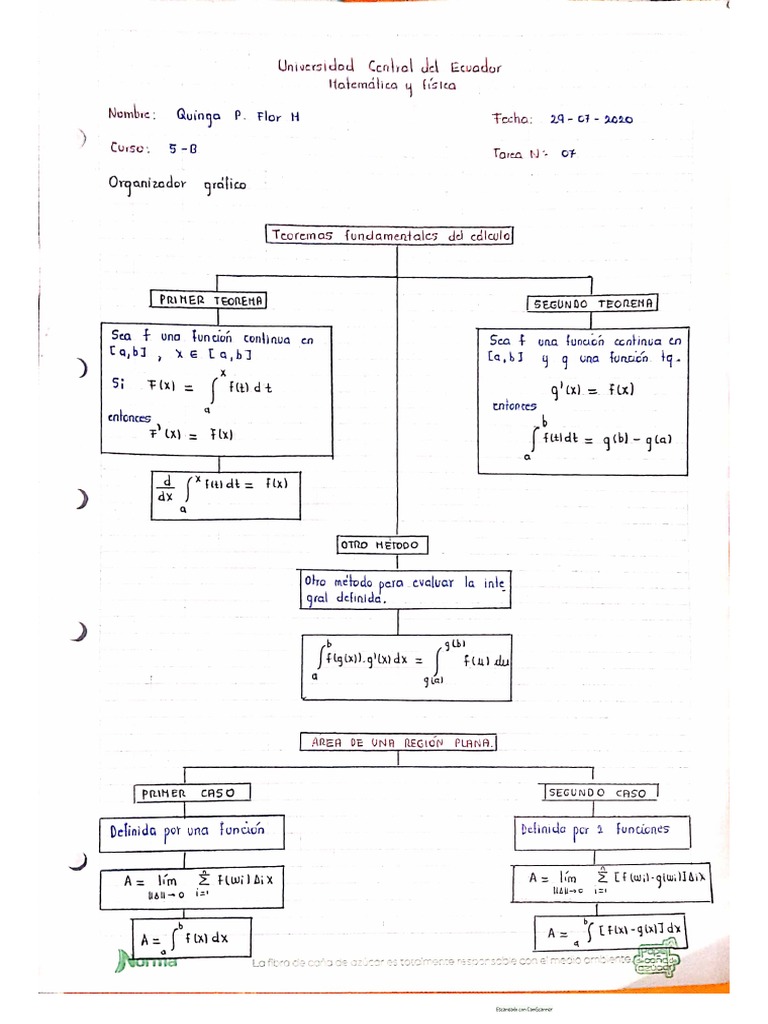 Universidad Central del Ecuador
Matemática y física
Nombre: Quinga P. Flor M
Fecha: 29-07-2020
Curso: 5-B
Tarea N°- 07
Organizador gráfico
Teoremas fundamentales del cálculo
PRIMER TEOREMA
SEGUNDO TEOREMA
Sea f una función continua en
[a,b] , x ∈ [a,b]
Si F(x) = ∫ₐˣ f(t) dt
entonces
F'(x) = f(x)
d/dx ∫ₐˣ f(t) dt = f(x)
Sea f una función continua en
[a,b] y g una función tq.
g'(x) = f(x)
entonces
∫ₐᵇ f(t) dt = g(b) - g(a)
OTRO MÉTODO
Otro método para evaluar la inte-
gral definida.
∫ₐᵇ f(g(x)).g'(x) dx = ∫_{g(a)}^{g(b)} f(u) du
AREA DE UNA REGIÓN PLANA.
PRIMER CASO
SEGUNDO CASO
Definida por una función
Definida por 2 funciones
A = lím ||Δ||→0 Σ i=1 n f(wi) Δix
A = lím ||Δ||→0 Σ i=1 n [f(wi)-g(wi)]Δix
A = ∫ₐᵇ f(x) dx
A = ∫ₐᵇ [f(x)-g(x)] dx
Norma
La fibra de caña de azúcar es totalmente responsable con el medio ambiente
Papel de caña de azúcar
Escaneado con CamScanner